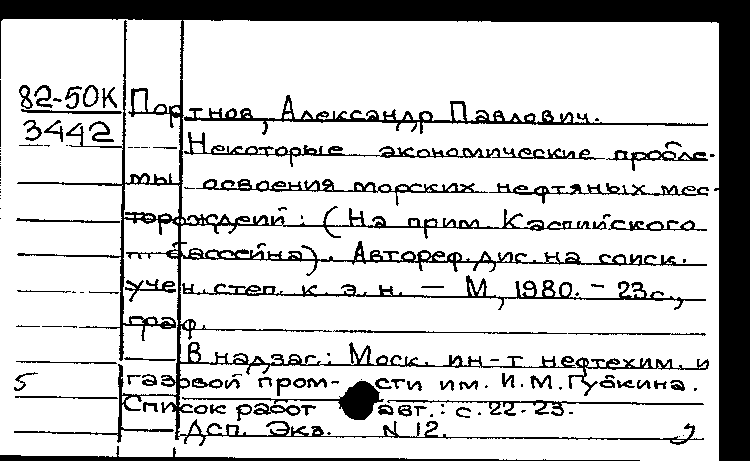 82-50К Портнов, Александр Павлович.
3442
Некоторые экономические пробле-
мы освоения морских нефтяных мес-
торождений: (На прим. Каспийского
бассейна). Автореф. дис. на соиск.
учен. степ. к. э. н. — М, 1980. - 23с.,
граф.
В надзаг.: Моск. ин-т нефтехим. и
5 газовой пром-сти им. И.М.Губкина.
Список работ авт.: с. 22-23.
Дсп. Экз. N 12.